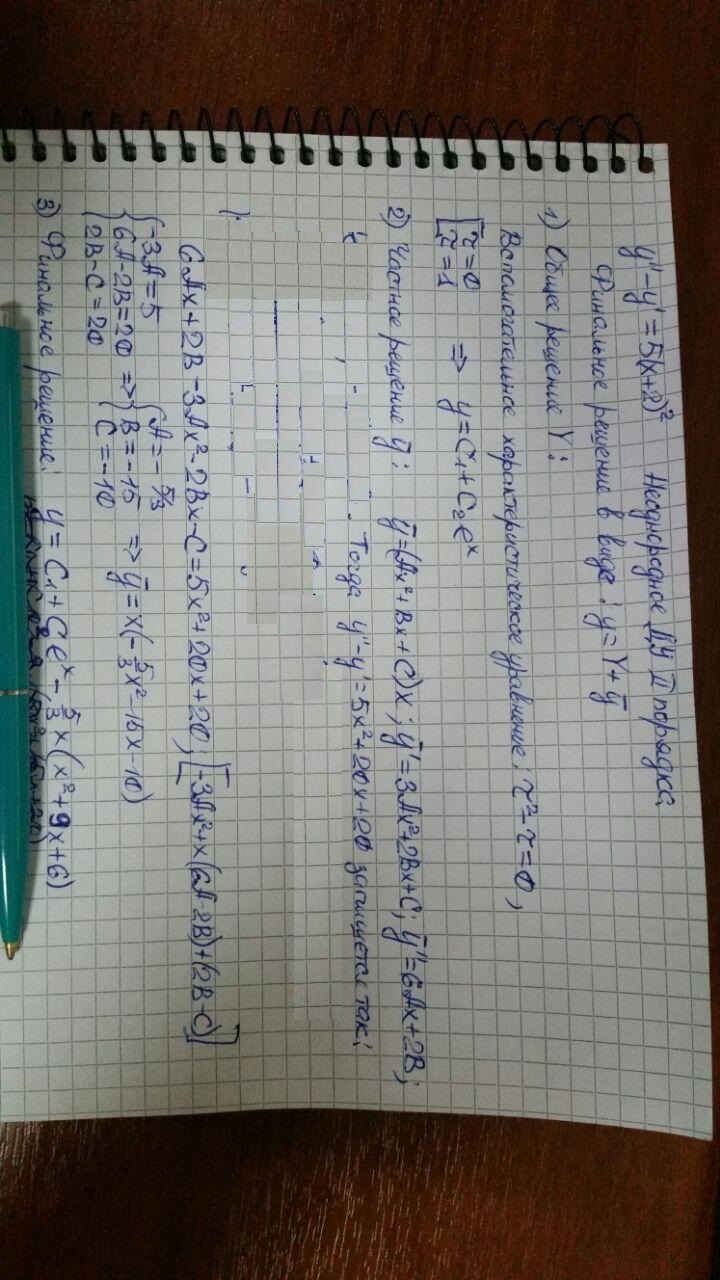 y''-y'=5(x+2)² Неоднородное ДУ II порядка
Финальное решение в виде: y=Y+ȳ
1) Общее решение Y:
Вспомогательное характеристическое уравнение: r²-r=0,
[r=0
[r=1 => y=C₁+C₂eˣ
2) Частное решение ȳ: ȳ=(Ax²+Bx+C)x; ȳ'=3Ax²+2Bx+C; ȳ''=6Ax+2B;
Тогда y''-y'=5x²+20x+20 запишется так:
6Ax+2B-3Ax²-2Bx-C=5x²+20x+20; [-3Ax²+x(6A-2B)+(2B-C)]
{-3A=5 {A=-5/3
{6A-2B=20 => {B=-15 => ȳ=x(-5/3x²-15x-10)
{2B-C=20 {C=-10
3) Финальное решение: y=C₁+C eˣ-5/3x(x²+9x+6)